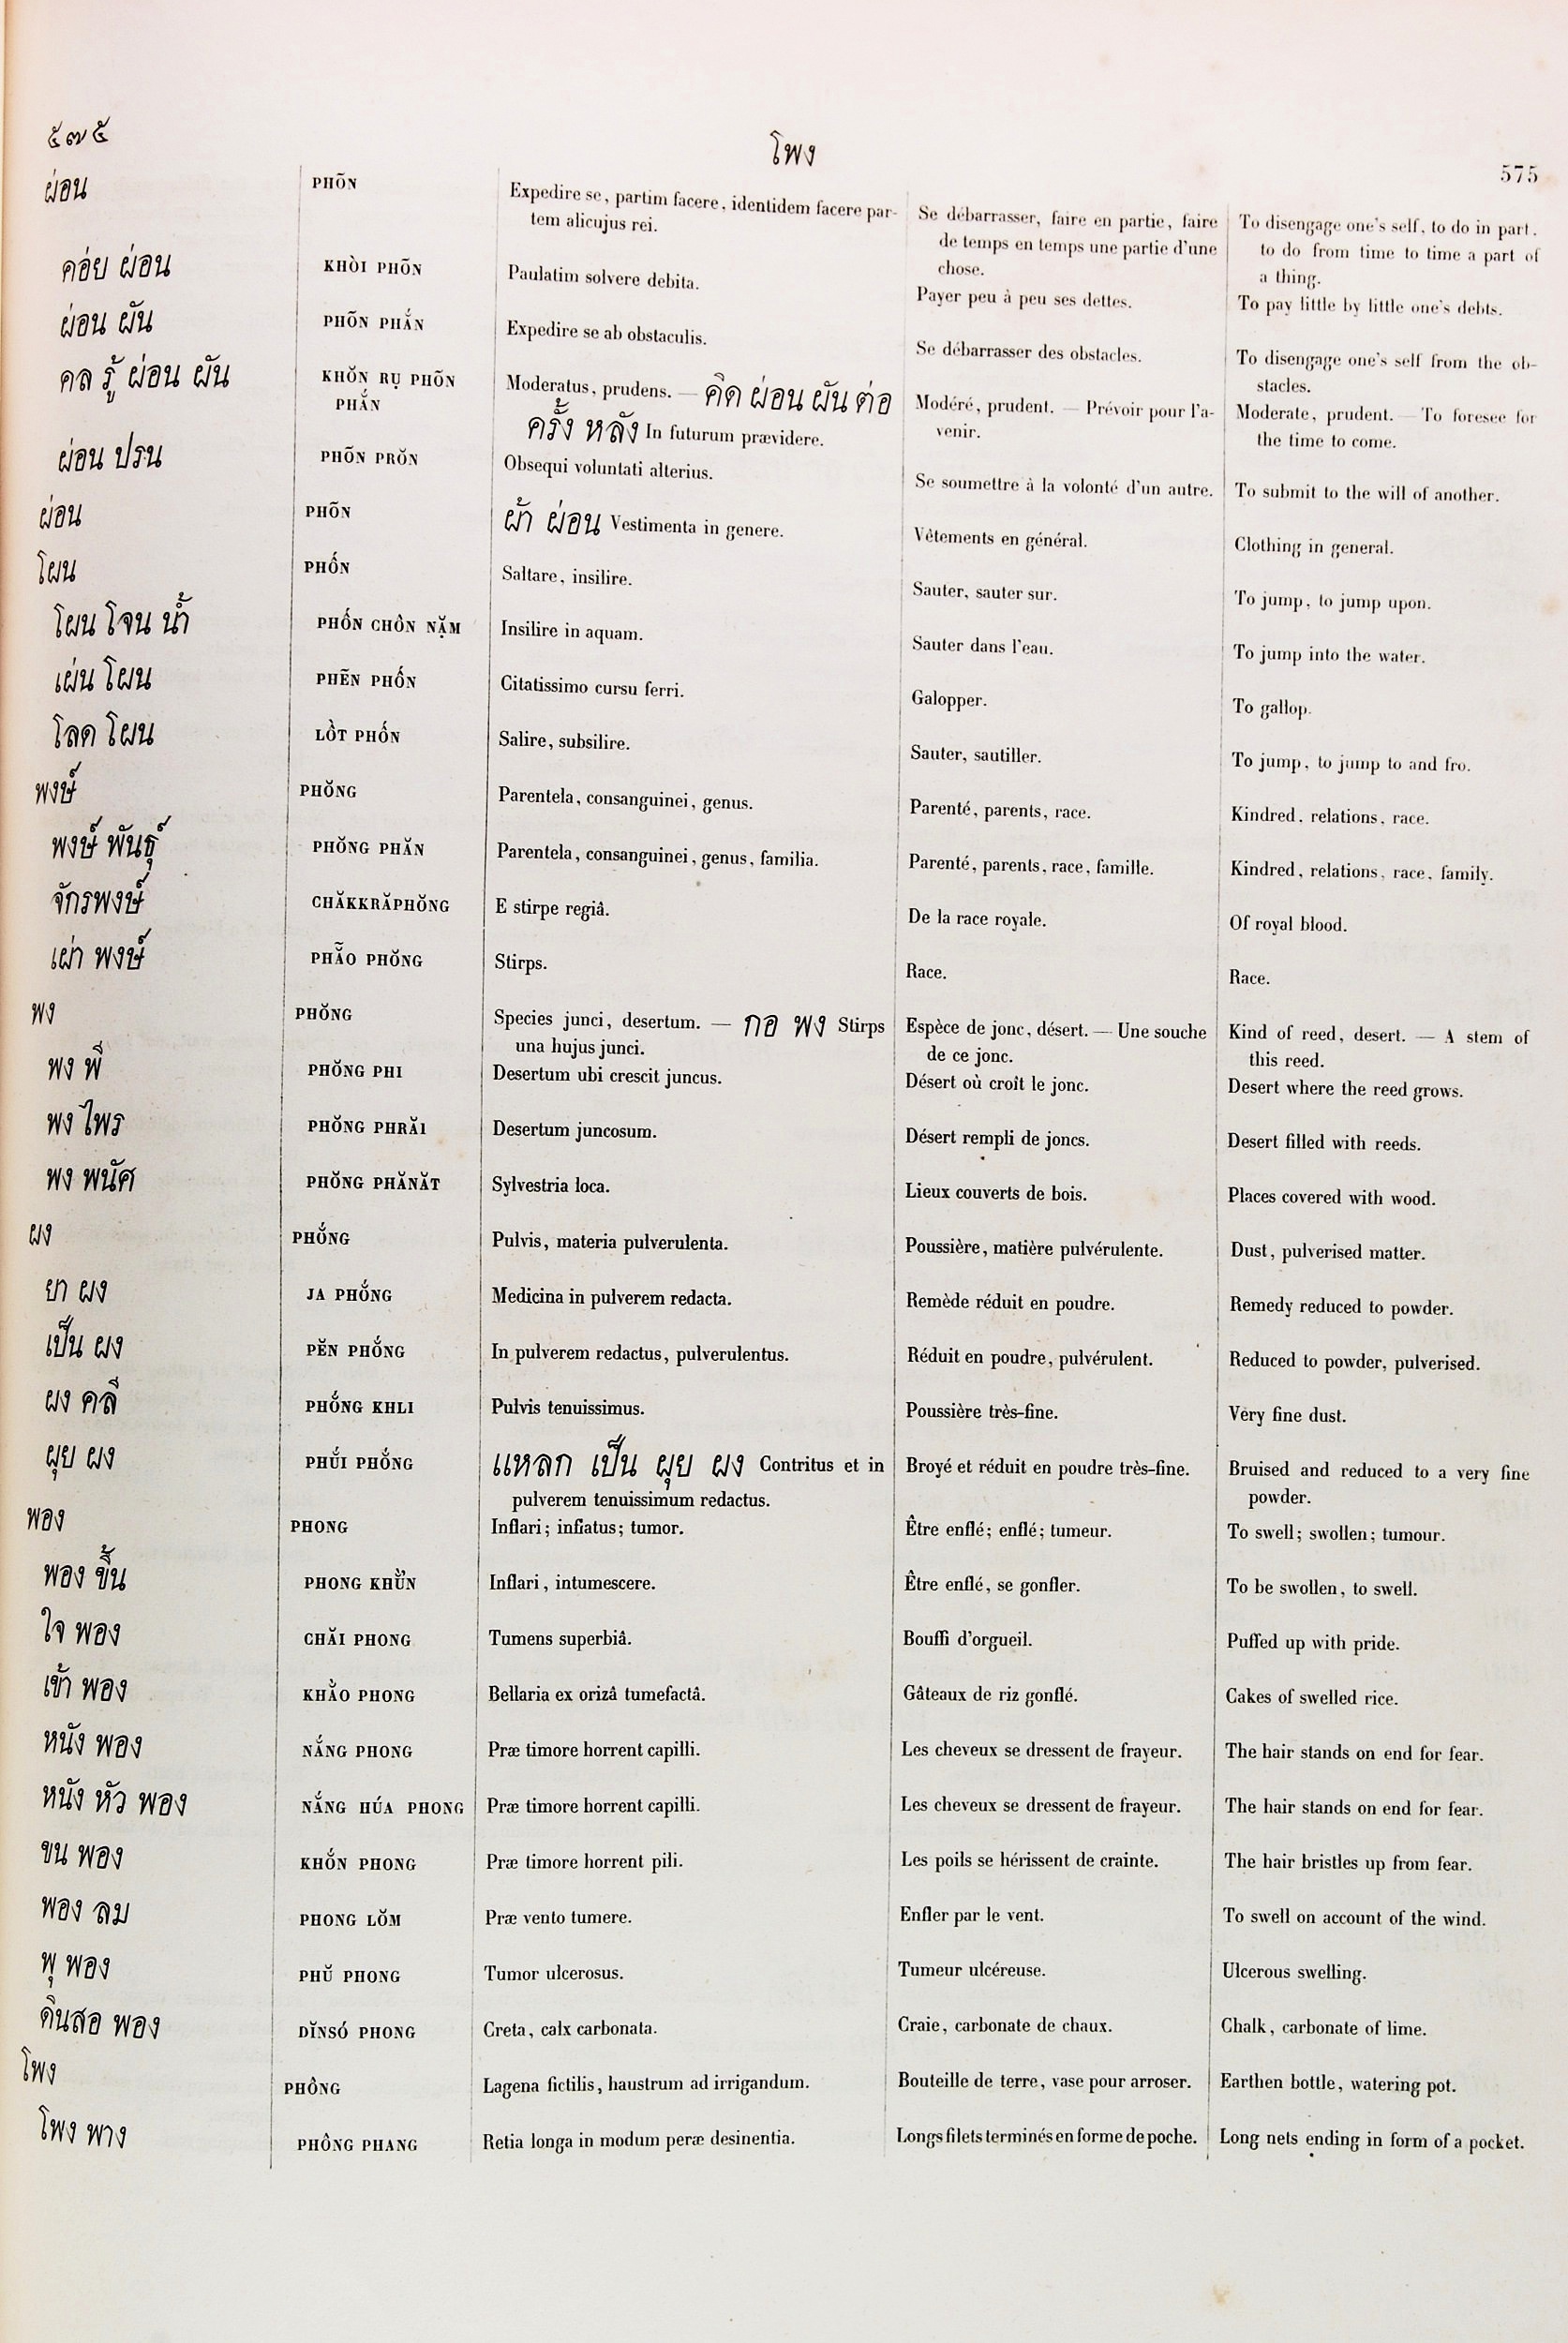 ๕๗๕
โพง
575
ผ่อน PHÕN Expedire se, partim facere, identidem facere par- Se débarrasser, faire en partie, faire To disengage one's self, to do in part,
tem alicujus rei. de temps en temps une partie d'une to do from time to time a part of
chose. a thing.
ค่อย ผ่อน KHÒI PHÕN Paulatim solvere debita. Payer peu à peu ses dettes. To pay little by little one's debts.
ผ่อน ผัน PHÕN PHẮN Expedire se ab obstaculis. Se débarrasser des obstacles. To disengage one's self from the ob-
stacles.
คล รู้ ผ่อน ผัน KHŎN RỤ PHÕN Moderatus, prudens. — คิด ผ่อน ผัน ต่อ Modéré, prudent. — Prévoir pour l'a- Moderate, prudent. — To foresee for
PHẮN ครั้ง หลัง In futurum prævidere. venir. the time to come.
ผ่อน ปรน PHÕN PRŎN Obsequi voluntati alterius. Se soumettre à la volonté d'un autre. To submit to the will of another.
ผ่อน PHÕN ผ้า ผ่อน Vestimenta in genere. Vêtements en général. Clothing in general.
โผน PHỐN Saltare, insilire. Sauter, sauter sur. To jump, to jump upon.
โผน โจน น้ำ PHỐN CHÔN NẶM Insilire in aquam. Sauter dans l'eau. To jump into the water.
เผ่น โผน PHẼN PHỐN Citatissimo cursu ferri. Galopper. To gallop.
โลด โผน LỒT PHỐN Salire, subsilire. Sauter, sautiller. To jump, to jump to and fro.
พงษ์ PHŎNG Parentela, consanguinei, genus. Parenté, parents, race. Kindred, relations, race.
พงษ์ พันธุ์ PHŎNG PHĂN Parentela, consanguinei, genus, familia. Parenté, parents, race, famille. Kindred, relations, race, family.
จักรพงษ์ CHĂKKRĂPHŎNG E stirpe regiâ. De la race royale. Of royal blood.
เผ่า พงษ์ PHẴO PHŎNG Stirps. Race. Race.
พง PHŎNG Species junci, desertum. — กอ พง Stirps Espèce de jonc, désert. — Une souche Kind of reed, desert. — A stem of
una hujus junci. de ce jonc. this reed.
พง พี PHŎNG PHI Desertum ubi crescit juncus. Désert où croît le jonc. Desert where the reed grows.
พง ไพร PHŎNG PHRĂI Desertum juncosum. Désert rempli de joncs. Desert filled with reeds.
พง พนัศ PHŎNG PHĂNĂT Sylvestria loca. Lieux couverts de bois. Places covered with wood.
ผง PHŎ́NG Pulvis, materia pulverulenta. Poussière, matière pulvérulente. Dust, pulverised matter.
ยา ผง JA PHŎ́NG Medicina in pulverem redacta. Remède réduit en poudre. Remedy reduced to powder.
เป็น ผง PĔN PHŎ́NG In pulverem redactus, pulverulentus. Réduit en poudre, pulvérulent. Reduced to powder, pulverised.
ผง คลี PHŎ́NG KHLI Pulvis tenuissimus. Poussière très-fine. Very fine dust.
ผุย ผง PHŬ́I PHŎ́NG แหลก เป็น ผุย ผง Contritus et in Broyé et réduit en poudre très-fine. Bruised and reduced to a very fine
pulverem tenuissimum redactus. powder.
พอง PHONG Inflari; inflatus; tumor. Être enflé; enflé; tumeur. To swell; swollen; tumour.
พอง ขึ้น PHONG KHỪN Inflari, intumescere. Être enflé, se gonfler. To be swollen, to swell.
ใจ พอง CHĂI PHONG Tumens superbiâ. Bouffi d'orgueil. Puffed up with pride.
เข้า พอง KHẰO PHONG Bellaria ex orizâ tumefactâ. Gâteaux de riz gonflé. Cakes of swelled rice.
หนัง พอง NẮNG PHONG Præ timore horrent capilli. Les cheveux se dressent de frayeur. The hair stands on end for fear.
หนัง หัว พอง NẮNG HÚA PHONG Præ timore horrent capilli. Les cheveux se dressent de frayeur. The hair stands on end for fear.
ขน พอง KHŎ́N PHONG Præ timore horrent pili. Les poils se hérissent de crainte. The hair bristles up from fear.
พอง ลม PHONG LŎM Præ vento tumere. Enfler par le vent. To swell on account of the wind.
พุ พอง PHŬ PHONG Tumor ulcerosus. Tumeur ulcéreuse. Ulcerous swelling.
ดินสอ พอง DĬNSÓ PHONG Creta, calx carbonata. Craie, carbonate de chaux. Chalk, carbonate of lime.
โพง PHÔNG Lagena fictilis, haustrum ad irrigandum. Bouteille de terre, vase pour arroser. Earthen bottle, watering pot.
โพง พาง PHÔNG PHANG Retia longa in modum peræ desinentia. Longs filets terminés en forme de poche. Long nets ending in form of a pocket.